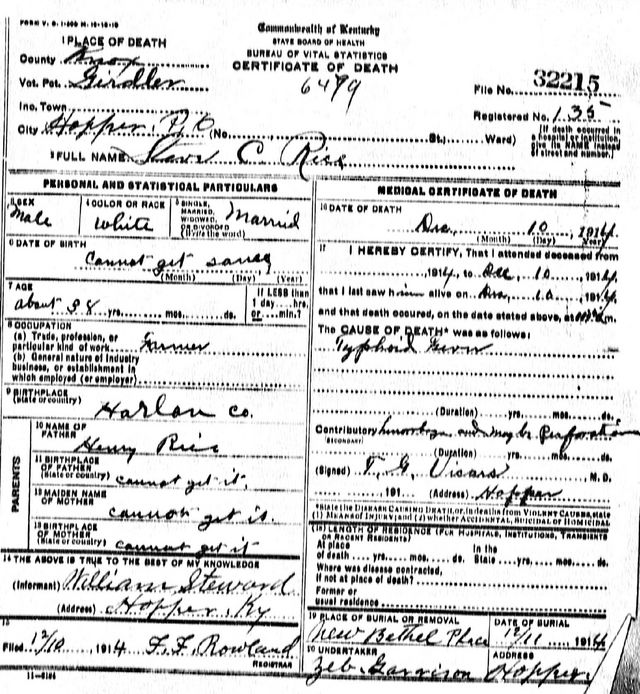 FORM V. S. 1-
Commonwealth of Kentucky
STATE BOARD OF HEALTH
BUREAU OF VITAL STATISTICS
CERTIFICATE OF DEATH
6479
1 PLACE OF DEATH
County Knox
Vot. Pct. Girdler
Inc. Town
City Hopper, P.O. (No. St.; Ward)
File No. 32215
Registered No. 135
[If death occurred in a hospital or institution, give its NAME instead of street and number.]
2 FULL NAME C. Rice
PERSONAL AND STATISTICAL PARTICULARS
3 SEX Male
4 COLOR OR RACE White
5 SINGLE, MARRIED, WIDOWED, OR DIVORCED (Write the word) Married
6 DATE OF BIRTH
Cannot get same
(Month) (Day) (Year)
7 AGE
about 38 yrs. mos. ds.
If LESS than 1 day hrs. or min.?
8 OCCUPATION
(a) Trade, profession, or particular kind of work Farmer
(b) General nature of industry business, or establishment in which employed (or employer)
9 BIRTHPLACE (State or country) Harlan Co.
PARENTS
10 NAME OF FATHER Henry Rice
11 BIRTHPLACE OF FATHER (State or country) cannot get it.
12 MAIDEN NAME OF MOTHER cannot get it.
13 BIRTHPLACE OF MOTHER (State or country) cannot get it
14 THE ABOVE IS TRUE TO THE BEST OF MY KNOWLEDGE
(Informant) William Steward
(Address) Hopper, Ky
15
Filed 12/10, 1914 F. F. Rowland
REGISTRAR
11-
MEDICAL CERTIFICATE OF DEATH
16 DATE OF DEATH
Dec. 10, 1914
(Month) (Day) (Year)
17 I HEREBY CERTIFY, That I attended deceased from
1914, to Dec, 10, 1914,
that I last saw him alive on Dec, 10, 1914,
and that death occured, on the date stated above, at m.
The CAUSE OF DEATH* was as follows:
Typhoid fever
(Duration) yrs. mos. ds.
Contributory hemorrhage and maybe perforation
(SECONDARY)
(Duration) yrs. mos. ds.
(Signed) T. G. M.D.
191 (Address) Hopper
*State the DISEASE CAUSING DEATH, or, in deaths from VIOLENT CAUSES, state (1) MEANS OF INJURY; and (2) whether ACCIDENTAL, SUICIDAL or HOMICIDAL
18 LENGTH OF RESIDENCE (FOR HOSPITALS, INSTITUTIONS, TRANSIENTS OR RECENT RESIDENTS)
At place of death yrs. mos. ds. In the State yrs. mos. ds.
Where was disease contracted, if not at place of death?
Former or usual residence
19 PLACE OF BURIAL OR REMOVAL New Bethel Place
DATE OF BURIAL 12/11, 1914
20 UNDERTAKER Zeb Garrison
ADDRESS Hopper,